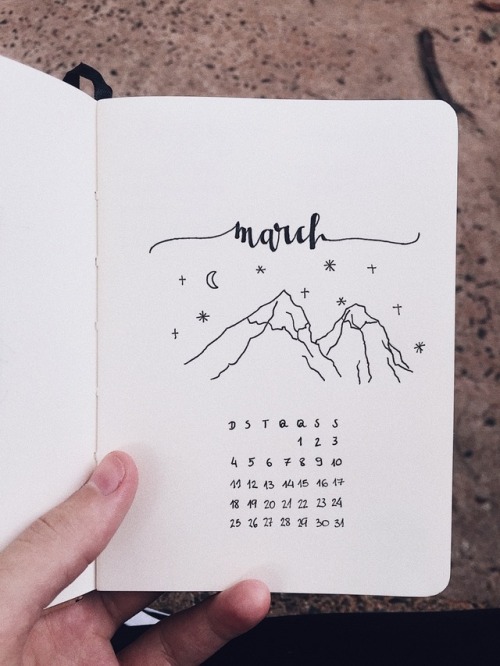 march
D S T Q Q S S
1 2 3
4 5 6 7 8 9 10
11 12 13 14 15 16 17
18 19 20 21 22 23 24
25 26 27 28 29 30 31